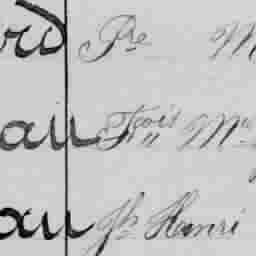 rd Pre M
au Fçois Mie
au Jh Henri